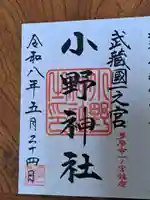 武蔵國一之宮
小野神社
令和八年五月二十四日